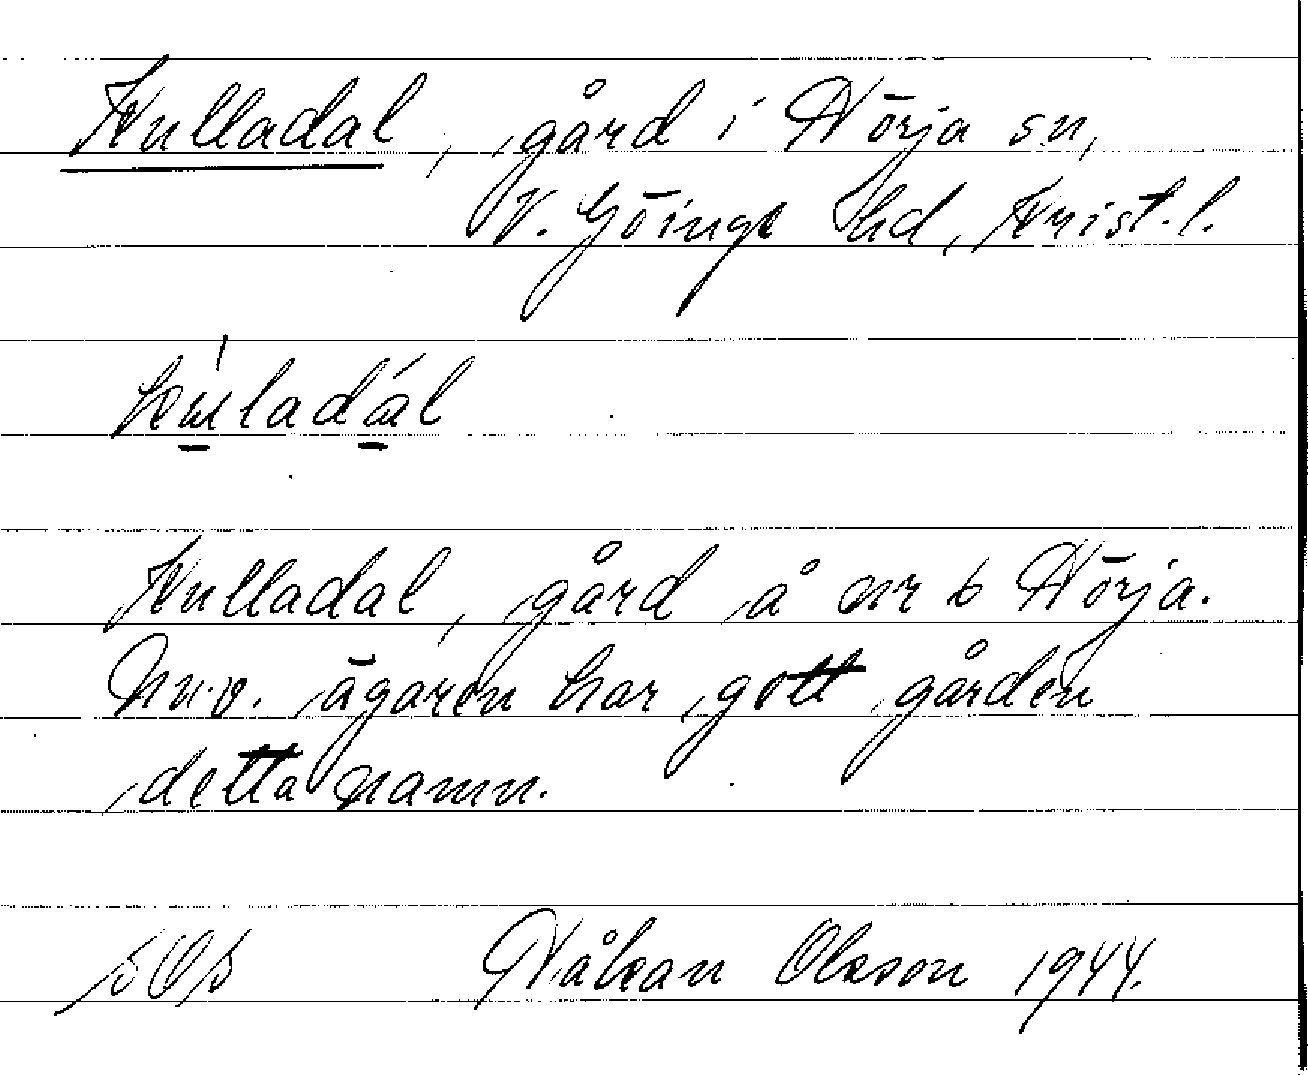 Kulladal, gård i Hörja sn,
V. Göinge hd, Krist. l.
Kulladal, gård å nr 6 Hörja.
Nuv. ägaren har gett gården
detta namn.
Håkan Olsson 1944.